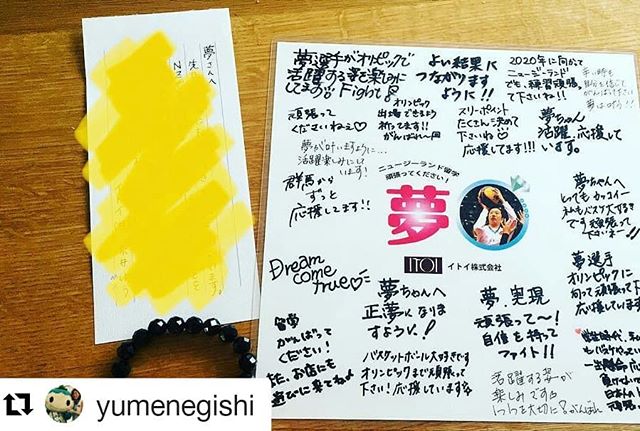 夢さんへ
夢選手がオリンピックで
活躍する姿を楽しみに
してます Fight
よい結果に
つながります
ように!!
2020年に向かって
ニュージーランド
でも、練習頑張って
下さいね!!
辛い時も
自分を信じて
がんばってください
夢は叶う!!
頑張って
くださいねぇ♡
オリンピック
出場できるよう
祈ってます!!
がんばれ〜
スリーポイント
たくさん決めて
下さいね♡
応援してます!!!
夢ちゃん
活躍、応援して
います。
夢が叶いますように…
活躍楽しみにして
います!
群馬から
ずっと
応援してます!!
ニュージーランド留学
頑張ってください!
夢
ITOI イトイ株式会社
夢ちゃんへ
とってもカッコイー
私もバスケ大好き
です 頑張って
下さいネー!!
Dream
come
true♡
夢ちゃんへ
正夢になり
ますよう!
夢、実現
頑張って〜!
自信を持って
ファイト!!
夢選手
オリンピックに
向って頑張って下
応援しています
留学
がんばって
ください!
また、お店にも
遊びに来てねっ
バスケットボール大好きです
オリンピックまで頑張って
下さい!応援しています☆
活躍する姿が
楽しみです
yumenegishi